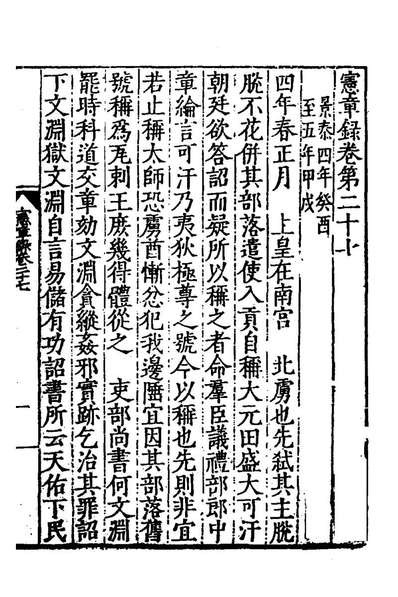 憲章錄卷第二十七
景泰四年癸酉
至五年甲戌
四年春正月　上皇在南宮　北虜也先弑其主脫
脫不花併其部落遣使入貢自稱大元田盛大可汗
朝廷欲答詔而疑所以稱之者命羣臣議禮部郎中
章綸言可汗乃夷狄極尊之號今以稱也先則非宜
若止稱太師恐虜酋慚忿犯我邊圉宜因其部落舊
號稱爲瓦剌王庶幾得體從之　吏部尚書何文淵
罷時科道交章劾文淵貪縱姦邪實跡乞治其罪詔
下文淵獄文淵自言易儲有功詔書所云天佑下民
憲章錄卷二十七
一